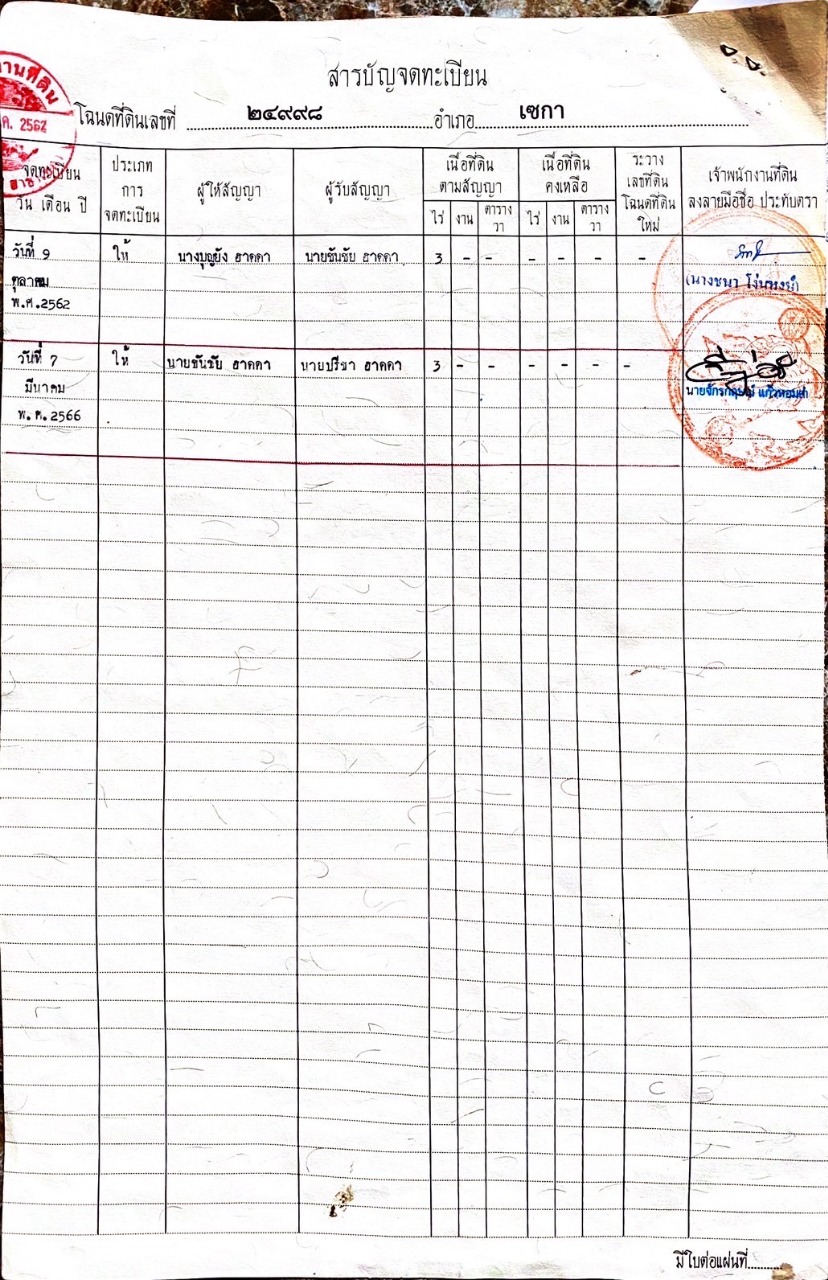 สารบัญจดทะเบียน
โฉนดที่ดินเลขที่ ๒๔๙๙๘ อำเภอ เซกา
านที่ดิน
ค. 2562
จดทะเบียน
วัน เดือน ปี
ประเภท
การ
จดทะเบียน
ผู้ให้สัญญา
ผู้รับสัญญา
เนื้อที่ดิน
ตามสัญญา
ไร่ งาน ตาราง
วา
เนื้อที่ดิน
คงเหลือ
ไร่ งาน ตาราง
วา
ระวาง
เลขที่ดิน
โฉนดที่ดิน
ใหม่
เจ้าพนักงานที่ดิน
ลงลายมือชื่อ ประทับตรา
วันที่ 9 ให้ นางบุญยัง ฮาดดา นายชันชัย ฮาดดา 3 - - - - - -
ตุลาคม
พ.ศ.2562
(นางชนา
วันที่ 7 ให้ นายชันชัย ฮาดดา นายปรีชา ฮาดดา 3 - - - - - -
มีนาคม
พ.ศ.2566
นายจักรกฤษณ์ แก้วหอมคำ
มีใบต่อแผ่นที่..........